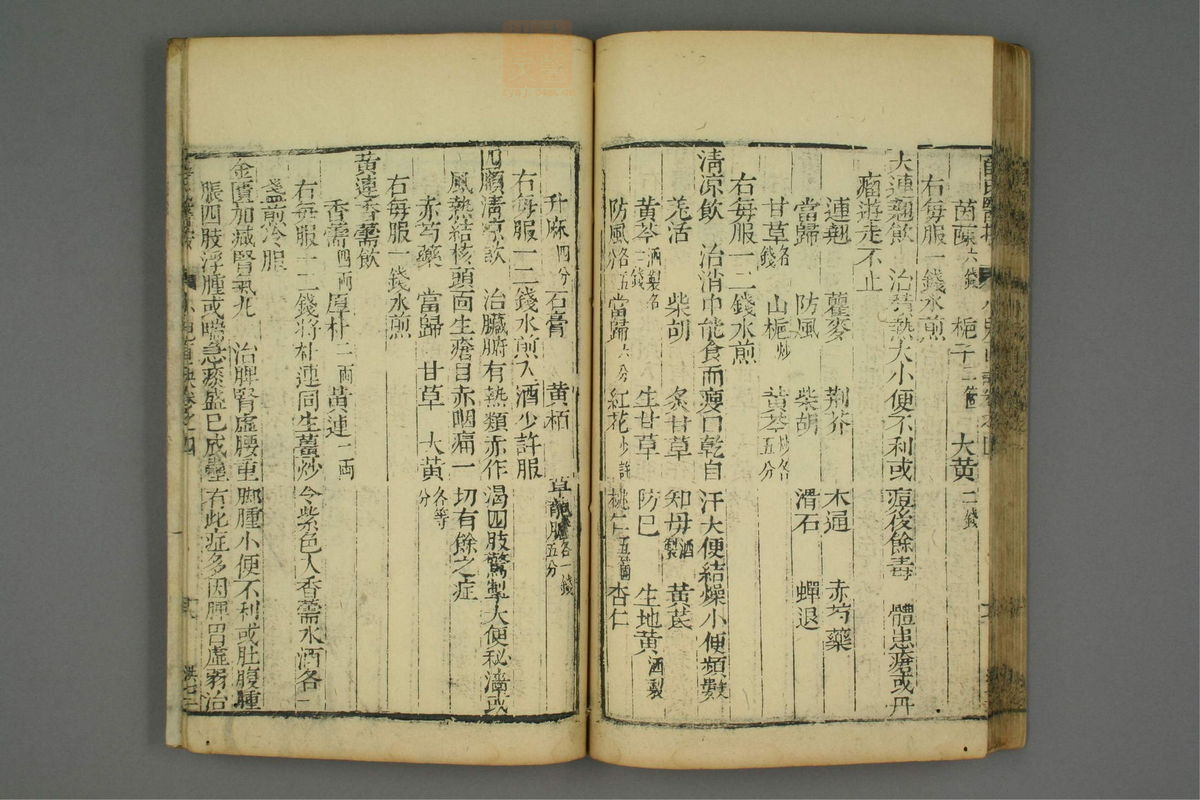 茵蔯六錢 梔子二十四箇 大黃二錢
右每服一錢水煎
大連翹飲 治積熱大小便不利或痘後餘毒 體患瘡或丹
瘤遊走不止
連翹 瞿麥 荊芥 木通 赤芍藥
當歸 防風 柴胡 滑石 蟬退
甘草各錢 山梔炒 黃芩炒各五分
右每服一二錢水煎
清凉飲 治消中能食而瘦口乾自汗大便結燥小便頻數
羌活 柴胡 炙甘草 知母酒製 黃芪
黃芩酒製各二錢 生甘草 防巳 生地黃酒製
防風各五分 當歸六分 紅花少許 桃仁五個 杏仁
升麻四分 石膏 黃栢 草龍膽各一錢五分
右每服一二錢水煎入酒少許服
四順清凉飲 治臟腑有熱類赤作渴四肢驚掣大便秘澁或
風熱結核頭面生瘡目赤咽痛一切有餘之症
赤芍藥 當歸 甘草 大黃各等分
右每服一錢水煎
黃連香薷飲
香薷四兩 厚朴二兩 黃連二兩
右每服一二錢將朴連同生薑炒令紫色入香薷水酒各一
盞煎冷服
金匱加減腎氣丸 治脾腎虛腰重脚腫小便不利或肚腹腫
脹四肢浮腫或喘急痰盛巳成蠱有此症多因脾胃虛弱治